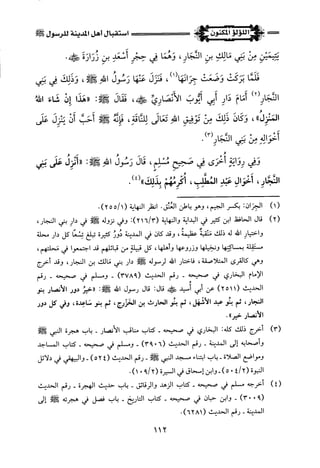 اللؤلؤ المكنون
استقبال أهل المدينة للرسول ﷺ
يَتِيمَيْنِ مِنْ بَنِي مَالِكِ بنِ النَّجَّارِ، وَهُمَا فِي حِجْرِ أَسْعَدِ بنِ زُرَارَةَ.
فَلَمَّا بَرَكَتْ وَضَعَتْ جِرَانَهَا(١)، فَنَزَلَ عَنْهَا رَسُولُ اللهِ ﷺ، وَذَلِكَ فِي بَنِي
النَّجَّارِ(٢) أَمَامَ دَارِ أَبِي أَيُّوبَ الأَنْصَارِيِّ ﷺ، فَقَالَ ﷺ: «هَذَا إِنْ شَاءَ اللهُ
المَنْزِلُ»، وَكَانَ ذَلِكَ مِنْ تَوْفِيقِ اللهِ تَعَالَى لِلنَّاقَةِ، فَإِنَّهُ ﷺ أَحَبَّ أَنْ يَنْزِلَ عَلَى
أَخْوَالِهِ مِنْ بَنِي النَّجَّارِ(٣).
وَفِي رِوَايَةٍ أُخْرَى فِي صَحِيحِ مُسْلِمٍ، قَالَ رَسُولُ اللهِ ﷺ: «أَنْزِلُ عَلَى بَنِي
النَّجَّارِ، أَخْوَالِ عَبْدِ المُطَّلِبِ، أُكْرِمُهُمْ بِذَلِكَ»(٤).
(١) الجِرَانُ: بكسر الجيم، وهو باطن العُنُقِ. انظر النهاية (٢٥٥/١).
(٢) قال الحافظ ابن كثير في البداية والنهاية (٢١٦/٣): وفي نزوله ﷺ في دار بني النجار،
واختيار الله له ذلك مَنْقَبَةٌ عظيمةٌ، وقد كان في المدينة دُورٌ كثيرة تبلغ تِسْعًا كل دار محلة
مستقلة بمساكنها ونخيلها وزروعها وأهلها، كل قبيلة من قبائلهم قد اجتمعوا في محلتهم،
وهي كالقرى المتلاصقة، فاختار الله لرسوله ﷺ دار بني مالك بن النجار، وقد أخرج
الإمام البخاري في صحيحه - رقم الحديث (٣٧٨٩) - ومسلم في صحيحه - رقم
الحديث (٢٥١١) عن أبي أسيد ﷺ قال: قال رسول الله ﷺ: «خيرُ دور الأنصار بنو
النجار، ثم بنو عبد الأشهل، ثم بنو الحارث بن الخزرج، ثم بنو ساعدة، وفي كل دور
الأنصار خير».
(٣) أخرج ذلك كله: البخاري في صحيحه - كتاب مناقب الأنصار - باب هجرة النبي ﷺ
وأصحابه إلى المدينة - رقم الحديث (٣٩٠٦) - ومسلم في صحيحه - كتاب المساجد
ومواضع الصلاة - باب ابتناء مسجد النبي ﷺ - رقم الحديث (٥٢٤) - والبيهقي في دلائل
النبوة (٥٠٤/٢) - وابن إسحاق في السيرة (١٠٩/٢).
(٤) أخرجه مسلم في صحيحه - كتاب الزهد والرقائق - باب حديث الهجرة - رقم الحديث
(٣٠٠٩) - وابن حبان في صحيحه - كتاب التاريخ - باب فصل في هجرته ﷺ إلى
المدينة - رقم الحديث (٦٢٨١).
١١٢